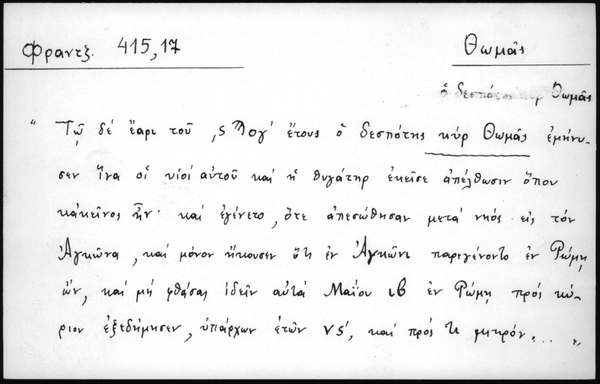 Φραντζ. 415,17
Θωμᾶς
ὁ δεσπότης κὺρ Θωμᾶς
" Τῷ δέ ἔαρι τοῦ ,ϛϠογ' ἔτους ὁ δεσπότης κύρ Θωμᾶς ἐμήνυ-
σεν ἵνα οἱ υἱοί αὐτοῦ καί ἡ θυγάτηρ ἐκεῖσε ἀπέλθωσιν ὅπου
κἀκεῖνος ἦν· καί ἐγένετο, ὅτε ἀπεσώθησαν μετά νηός εἰς τόν
Ἀγκῶνα, καί μόνον ἤκουσεν ὅτι ἐν Ἀγκῶνι παρεγένοντο ἐν Ρώμῃ
ὤν, καί μή φθάσας ἰδεῖν αὐτά Μαΐου ιβ ἐν Ρώμῃ πρός κύ-
ριον ἐξεδήμησεν, ὑπάρχων ἐτῶν νϛ', καί πρός τι μικρόν... "